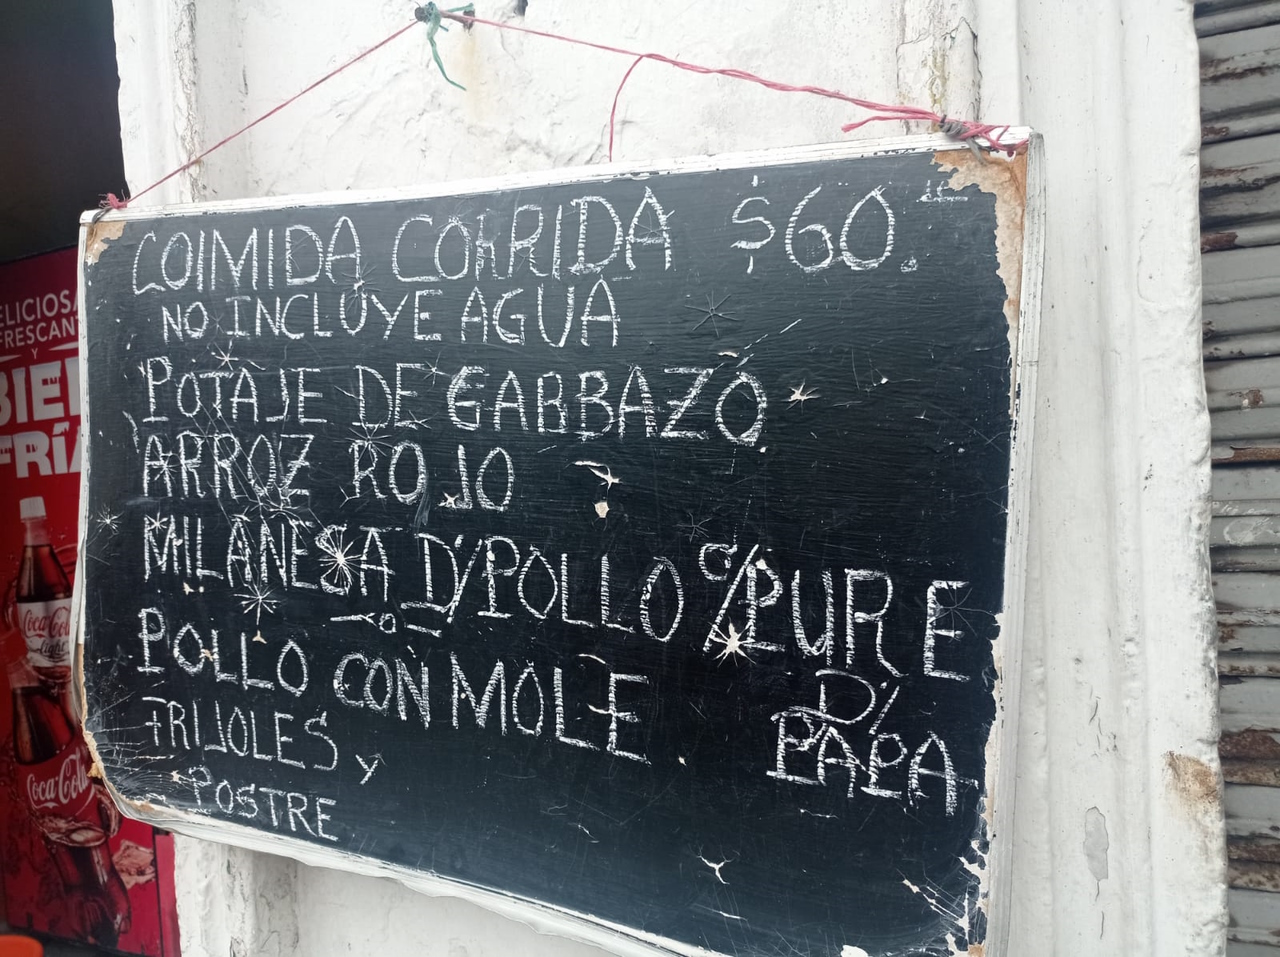 COIMIDA CORRIDA $60.
NO INCLUYE AGUA
POTAJE DE GABBAZO
ARROZ ROJO
MILANESA D/POLLO C/PURE
D/
PAPA
"o"
POLLO CON MOLE
FRIJOLES y
POSTRE
ELICIOSA
FRESCANT
Y
BIEN
FRÍA
Coca-Cola
light
Coca-Cola